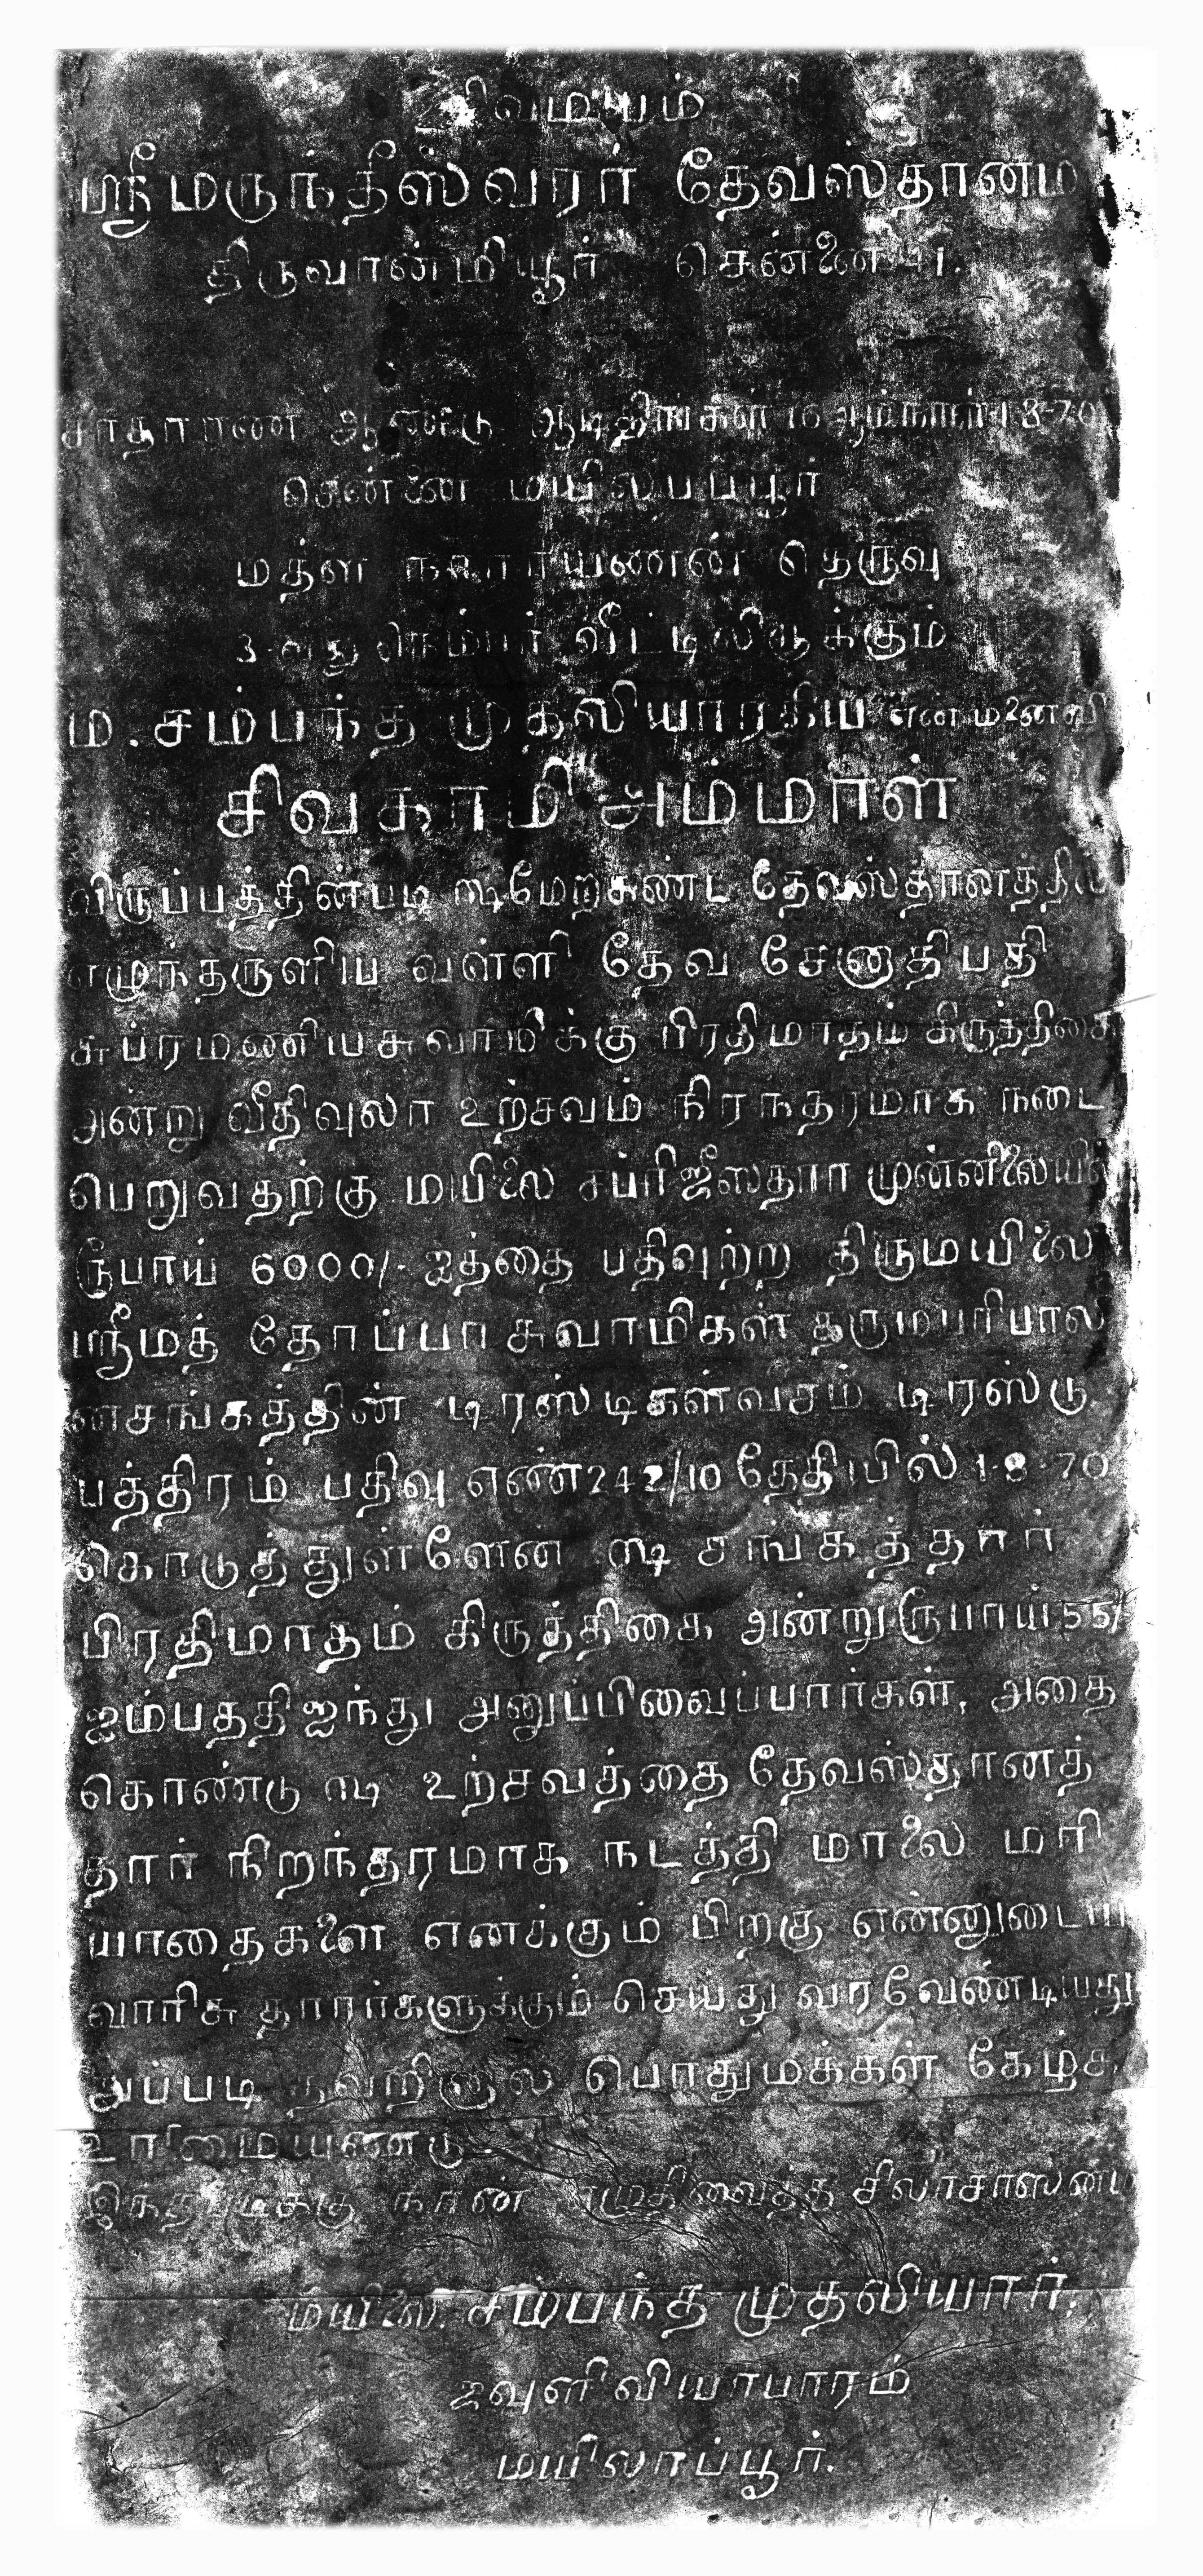 சிவமயம்
ஸ்ரீமருந்தீஸ்வரர் தேவஸ்தானம்
திருவான்மியூர் சென்னை 41.
சாதாரண ஆண்டு ஆடிதிங்கள் 16 ஆம்நாள்
சென்னை மயிலாப்பூர்
மத்ள நாராயணன் தெருவு
3-வது நெம்பர் வீட்டிலிருக்கும்
ம. சம்பந்த முதலியாராகிய என் மனைவி
சிவகாமி அம்மாள்
விருப்பத்தின்படி ௸மேற்கண்ட தேவஸ்தானத்தில்
எழுந்தருளிய வள்ளி தேவ சேனாதிபதி
சுப்ரமணியசுவாமிக்கு பிரதிமாதம் கிருத்திகை
அன்று வீதிவுலா உற்சவம் நிரந்தரமாக நடை
பெறுவதற்கு மயிலை சப்ரிஜீஸ்தரா முன்னிலையில்
ரூபாய் 6000/- ஐத்தை பதிவுற்ற திருமயிலை
ஸ்ரீமத் தோப்பா சுவாமிகள் தருமபரிபால
னசங்கத்தின் டிரஸ்டிகள்வசம் டிரஸ்டு
பத்திரம் பதிவு எண்242/10 தேதியில் 1-8-70
கொடுத்துள்ளேன் ௸ சங்கத்தார்
பிரதிமாதம் கிருத்திகை அன்று ரூபாய் 55/
ஐம்பத்திஐந்து அனுப்பிவைப்பார்கள், அதை
கொண்டு ௸ உற்சவத்தை தேவஸ்தானத்
தார் நிறந்தரமாக நடத்தி மாலை மரி
யாதைகளை எனக்கும் பிறகு என்னுடைய
வாரிசு தாரர்களுக்கும் செய்து வரவேண்டியது
அப்படி தவறினால் பொதுமக்கள் கேழ்க
உரிமையுண்டு.
இந்தபடிக்கு நான் எழுதிவைத்த சிலாசாஸனம்
மயிலை. சம்பந்த முதலியார்.
ஜவுளி வியாபாரம்
மயிலாப்பூர்.